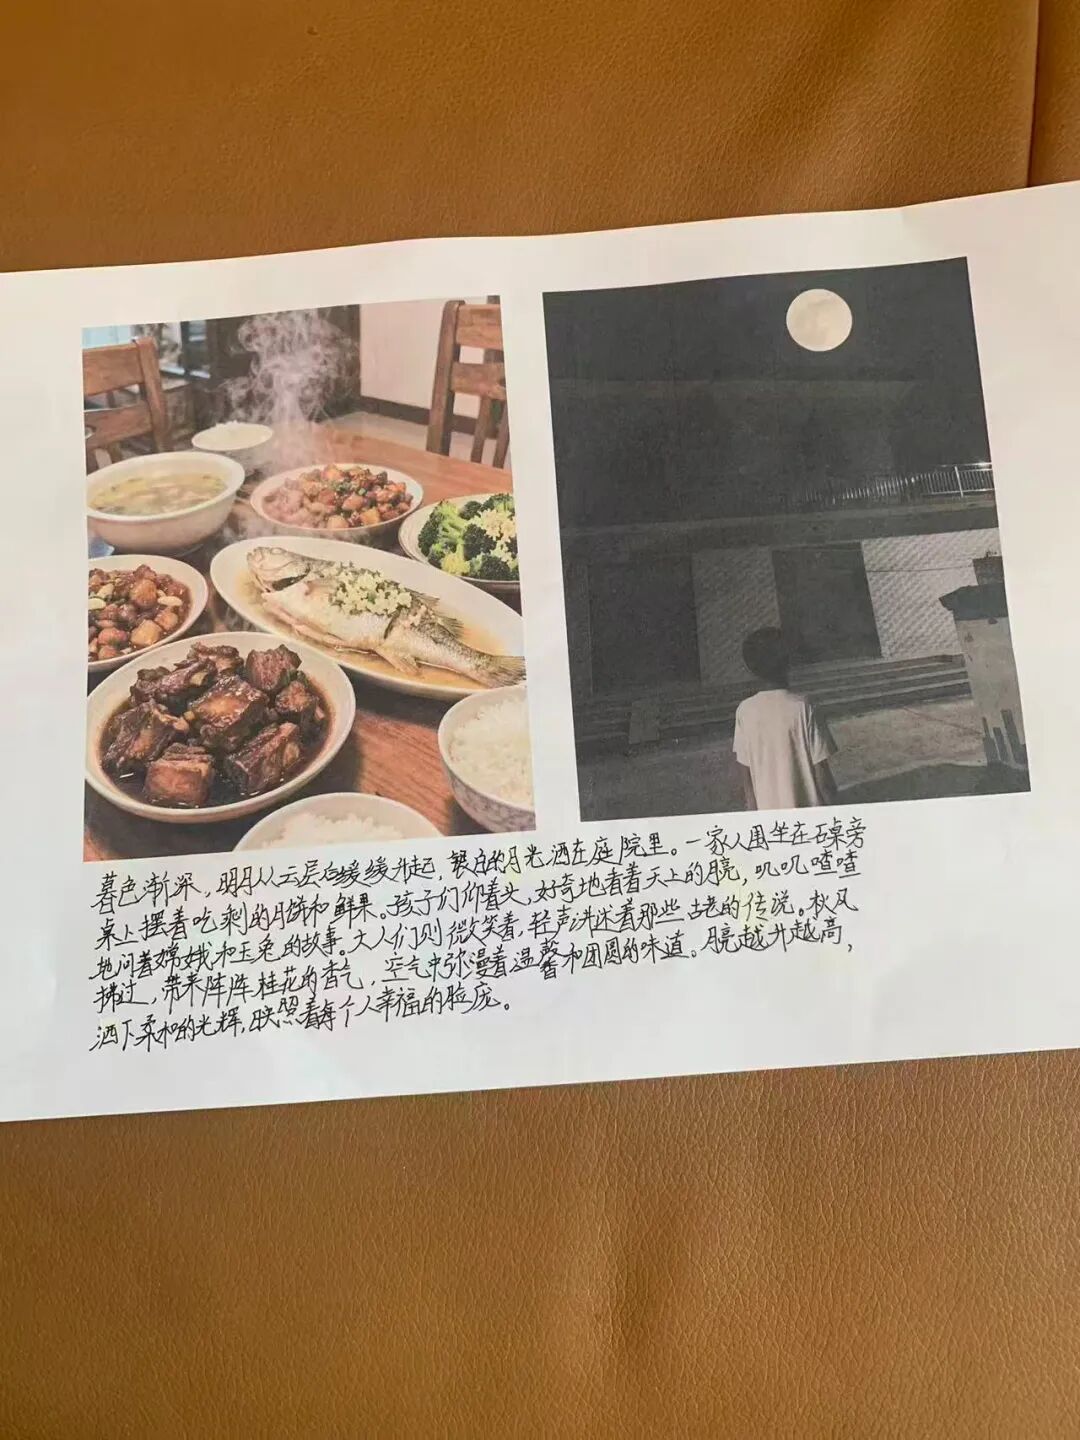 暮色渐深，明月从云层后缓缓升起，银白的月光洒在庭院里。一家人围坐在石桌旁
桌上摆着吃剩的月饼和鲜果。孩子们仰着头，好奇地看着天上的月亮，叽叽喳喳
地问着嫦娥和玉兔的故事。大人们则微笑着，轻声讲述着那些古老的传说。秋风
拂过，带来阵阵桂花的香气，空气中弥漫着温馨和团圆的味道。月亮越升越高，
洒下柔和的光辉，映照着每个人幸福的脸庞。